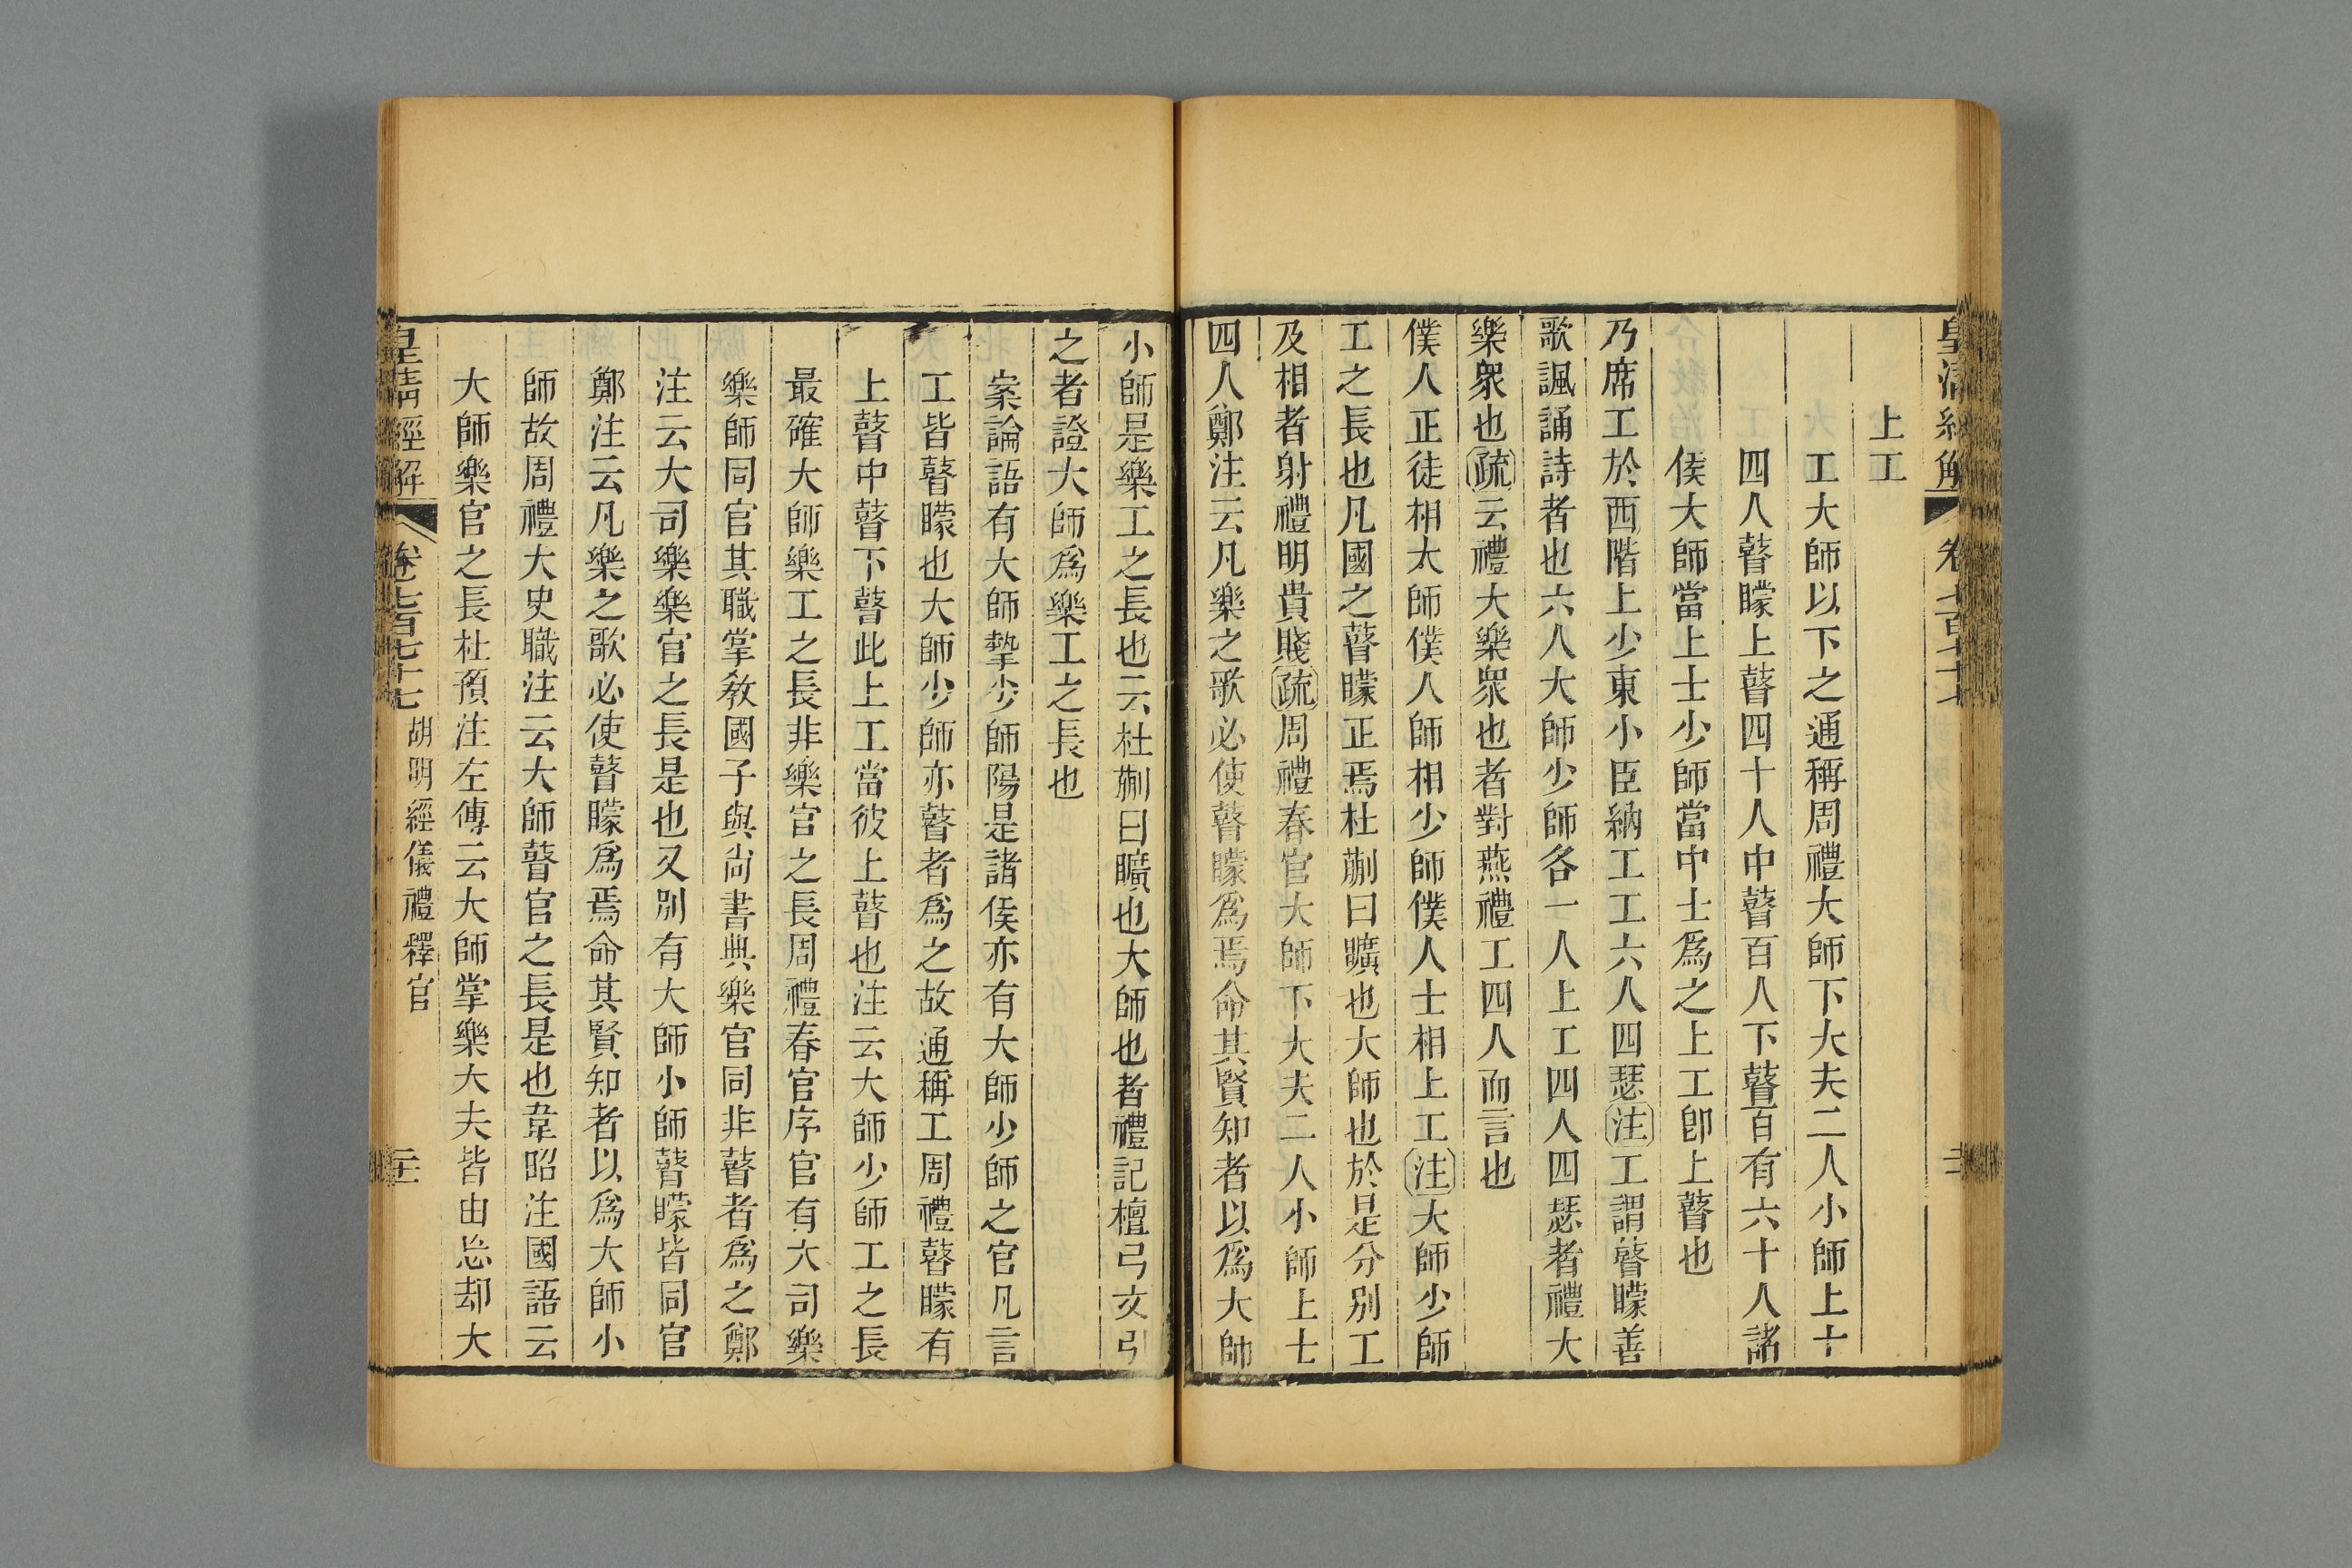 皇清經解 卷七百七十七
上工
工大師以下之通稱周禮大師下大夫二人小師上士
四人瞽矇上瞽四十人中瞽百人下瞽百有六十人諸
侯大師當上士少師當中士爲之上工卽上瞽也
乃席工於西階上少東小臣納工工六人四瑟注工謂瞽矇善
歌諷誦詩者也六人大師少師各一人上工四人四瑟者禮大
樂衆也疏云禮大樂衆也者對燕禮工四人而言也
僕人正徒相大師僕人師相少師僕人士相上工注大師少師
工之長也凡國之瞽矇正焉杜蒯曰曠也大師也於是分别工
及相者射禮明貴賤疏周禮春官大師下大夫二人小師上士
四人鄭注云凡樂之歌必使瞽矇爲焉命其賢知者以爲大師
小師是樂工之長也云杜蒯曰曠也大師也者禮記檀弓文引
之者證大師爲樂工之長也
案論語有大師摯少師陽是諸侯亦有大師少師之官凡言
工皆瞽矇也大師少師亦瞽者爲之故通稱工周禮瞽矇有
上瞽中瞽下瞽此上工當彼上瞽也注云大師少師工之長
最確大師樂工之長非樂官之長周禮春官序官有大司樂
樂師同官其職掌教國子與尚書典樂官同非瞽者爲之鄭
注云大司樂樂官之長是也又别有大師小師瞽矇皆同官
鄭注云凡樂之歌必使瞽矇爲焉命其賢知者以爲大師小
師故周禮大史職注云大師瞽官之長是也韋昭注國語云
大師樂官之長杜預注左傳云大師掌樂大夫皆由忘却大
皇清經解 卷七百七十七 胡明經儀禮釋官